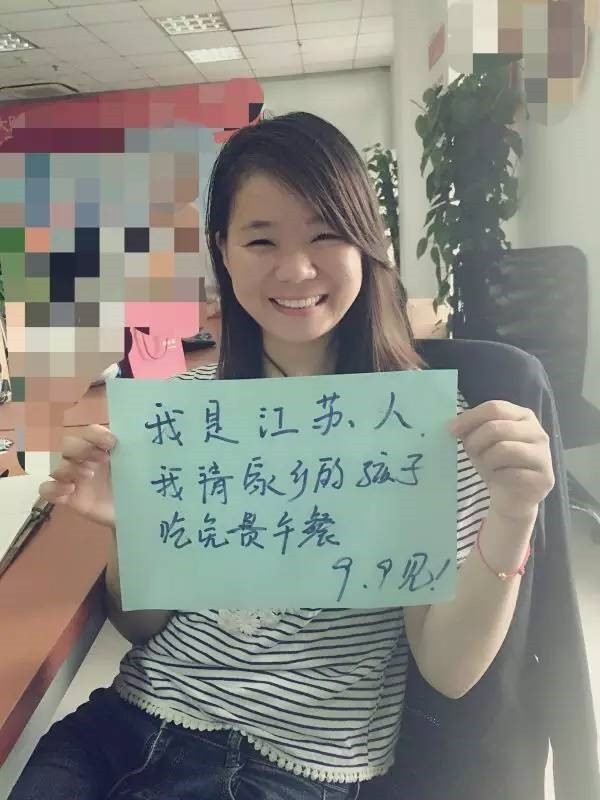 我是江苏人.
我请家乡的孩子
吃免费午餐
9.9见!